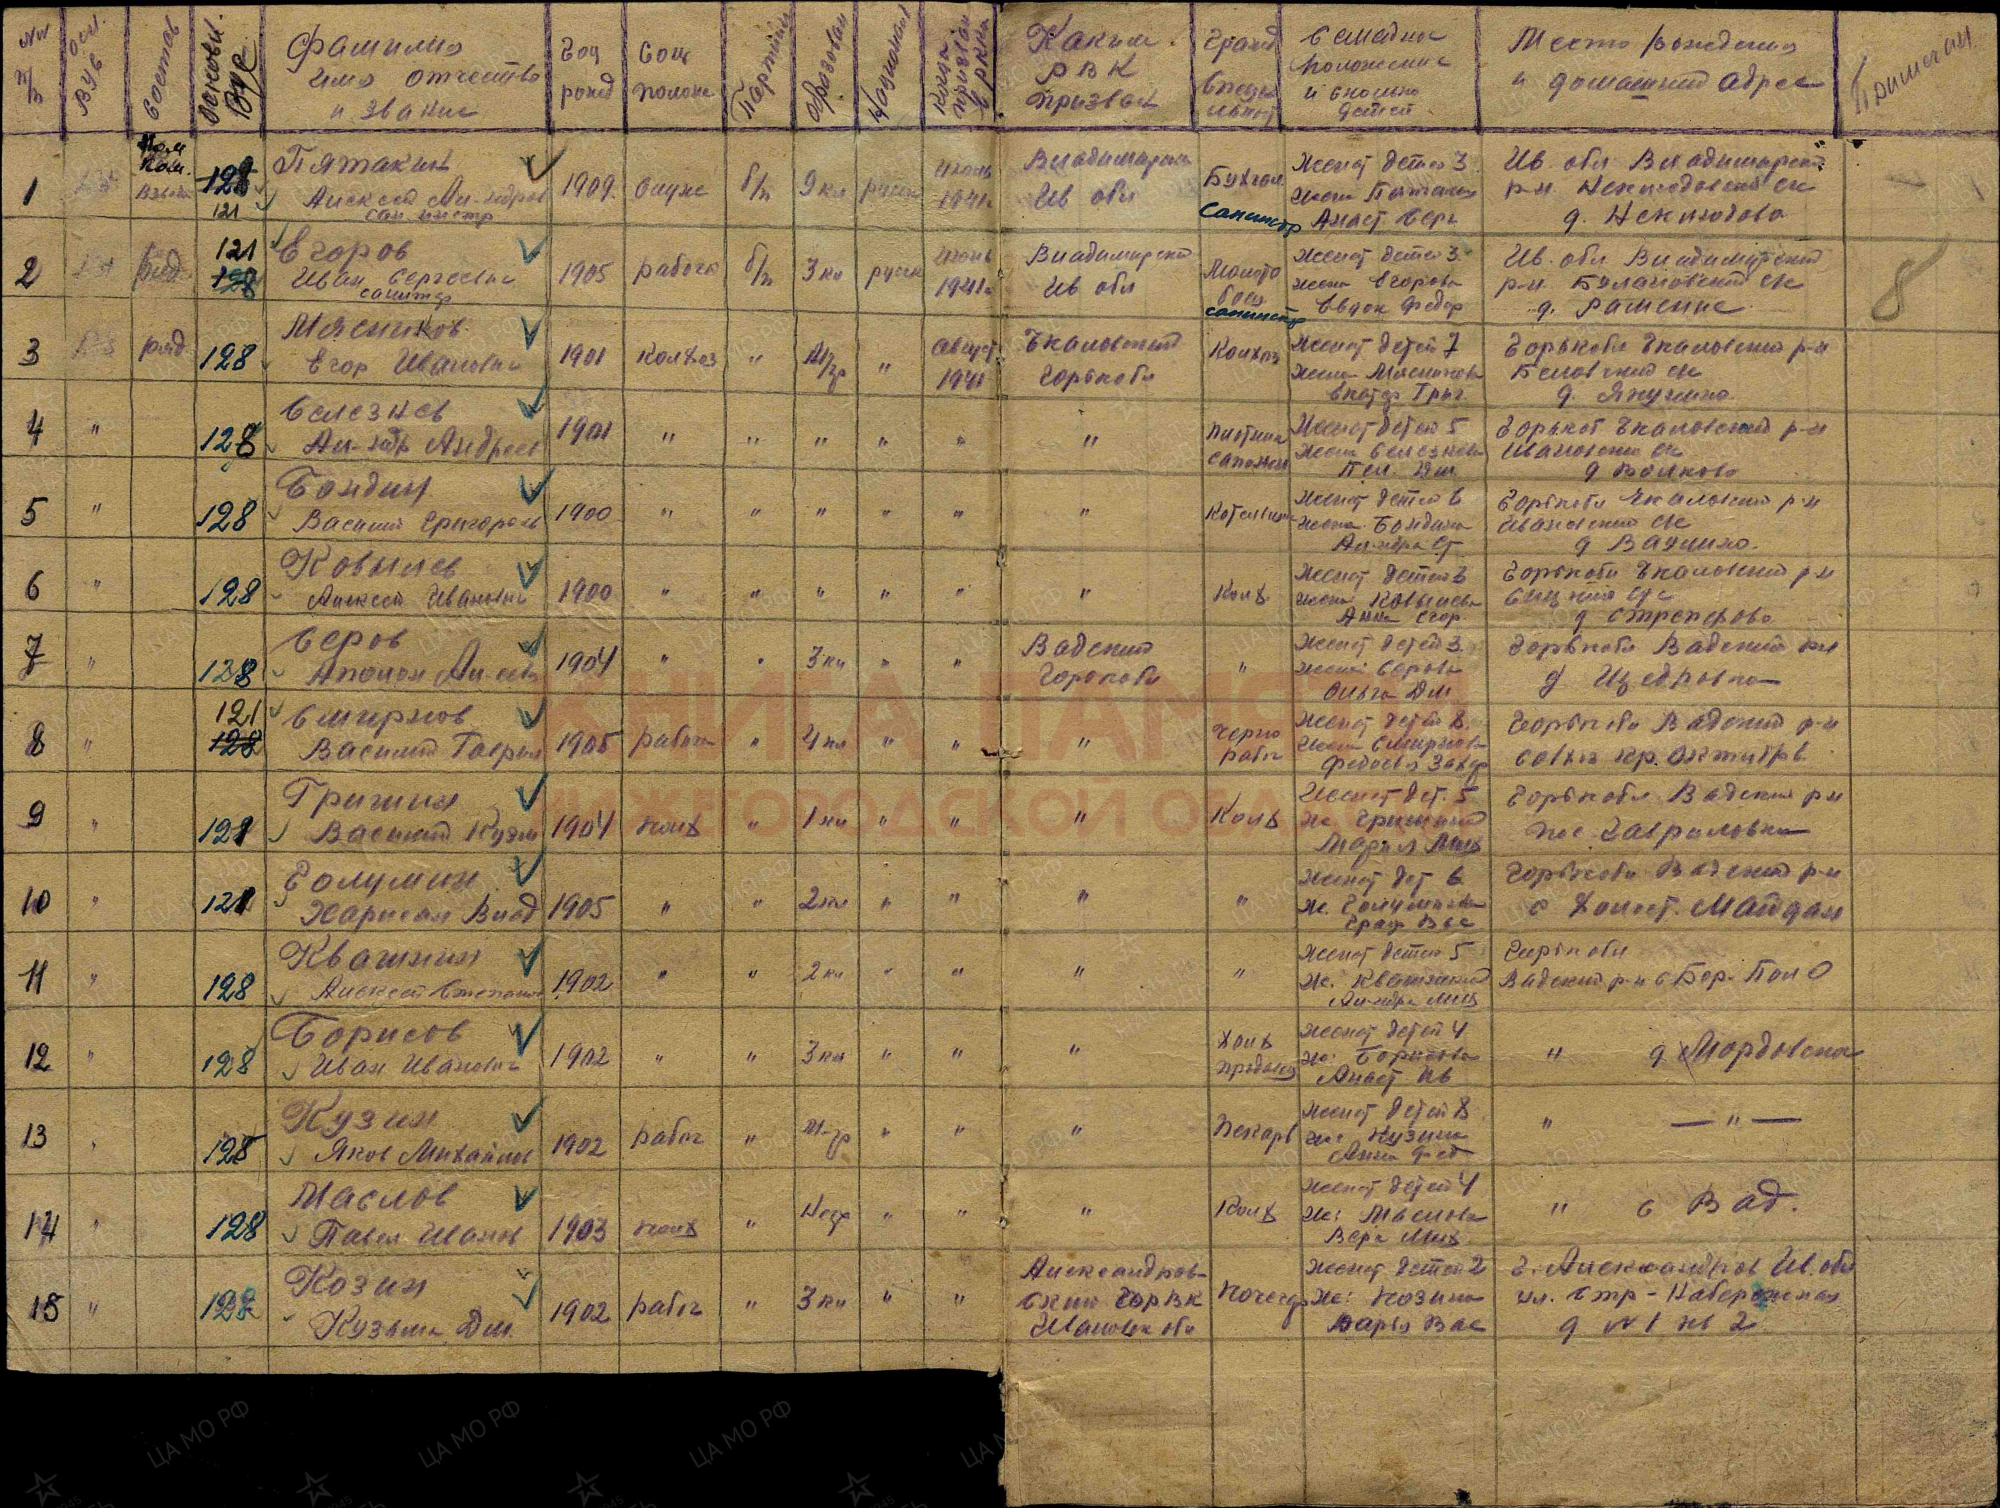 №№ п/п
осн. ВУС
Состав
Основн. ВУС
Фамилия имя отчество и звание
Год рожд
Соц положе
Партийн
Образован
Национал
Когда призван в РККА
Каким РВК призван
Гражд специальност
Семейное положение и сколько детей
Место рождения и домашний адрес
Примечан
1 Ком. взвода 128 121 Пятакин Алексей Ал-ндров сан. инстр 1909 служ б/п 9 кл русск июль 1941г Владимирск Ив обл Бухгал. Санинстр Женат детей 3 жена Пятакина Анаст Серг Ив. обл Владимирск. р-н. Некоюдовский с/с д. Некоюдово
2 ряд 121 128 Егоров Иван Сергеевич санитар 1905 рабоч б/п 3 кл русск июнь 1941г Владимирский Ив обл Молотобоец санинстр Женат детей 3 жена Егорова Евдок Федор Ив. обл Владимирский р-н. с/с д. Рамение
3 ряд 128 Мясников Егор Иванович 1901 колхоз " М/гр " Август 1941 Чкаловский Горькобл Колхоз Женат детей 7 жена Мясникова Екатер Григ Горькобл Чкаловский р-н Беловский с/с д. Якушино
4 " 128 Селезнев Ал-ндр Андреев 1901 " " " " " " сапожн Женат детей 5 жена Селезнева Пел. Дм. Горькобл Чкаловский р-н Ивановский с/с д Волково
5 " 128 Бондин Василий Григорьев 1900 " " " " " " Котельщик Женат детей 6 жена. Бондина Ал-ндра Ст Горькобл Чкаловский р-н Ивановский с/с д Вашино.
6 " 128 Ковылев Алексей Иванович 1900 " " " " " " Колх Женат детей 6 жена Ковылева Анна Егор Горькобл Чкаловский р-н с/с д
7 " 128 Серов Ал-еев 1904 " " 3 кл " " Вадский Горькобл " Женат детей 3 жена: Серова Ольга Дм Горькобл Вадский р-н д
8 " 121 128 Смирнов Василий Гаврил 1905 рабоч " 4 кл " " " Чернорабоч Женат детей 8 жена Смирнова Федосья Захар Горькобл Вадский р-н совхоз Кр. Октябрь
9 " 121 Гришин Василий Кузм 1904 колх " 1 кл " " " Колх Женат дет. 5 ж. Гришина Мария Мих Горькобл Вадский р-н пос Гавриловка
10 " 121 Голумин Харисан Влад 1905 " " 2 кл " " " " Женат дет 6 ж. Голумина Вас Горькобл Вадский р-н с Холост. Майдан
11 " 128 Квашнин Алексей Степанов 1902 " " 2 кл " " " " Женат детей 5 ж. Квашнина Ал-ндра Горькобл Вадский р-н с Бер. Пойо
12 " 128 Борисов Иван Иванович 1902 " " 3 кл " " " Женат детей 4 ж: Борисова Анаст Ив " д Мордовская
13 " 128 Кузин Яков Михайлов 1902 рабоч " М-гр " " " Пекарь Женат детей 8 ж: Кузина Анна Фед " — " —
14 " 128 Маслов Павел Иванов 1903 колх " Негр " " " Колх Женат детей 4 ж: Маслова Вера Мих " с Вад.
15 " 128 Козин Кузьма Дм. 1902 рабоч " 3 кл " " Александровский ГорВК Ивановск обл Кочегар Женат детей 2 ж: Козина Дарья Вас г. Александров Ив. обл ул. Стр-Набережная д №1 кв 2
8
КНИГА ПАМЯТИ
НИЖЕГОРОДСКОЙ ОБЛАСТИ
ЦА МО РФ